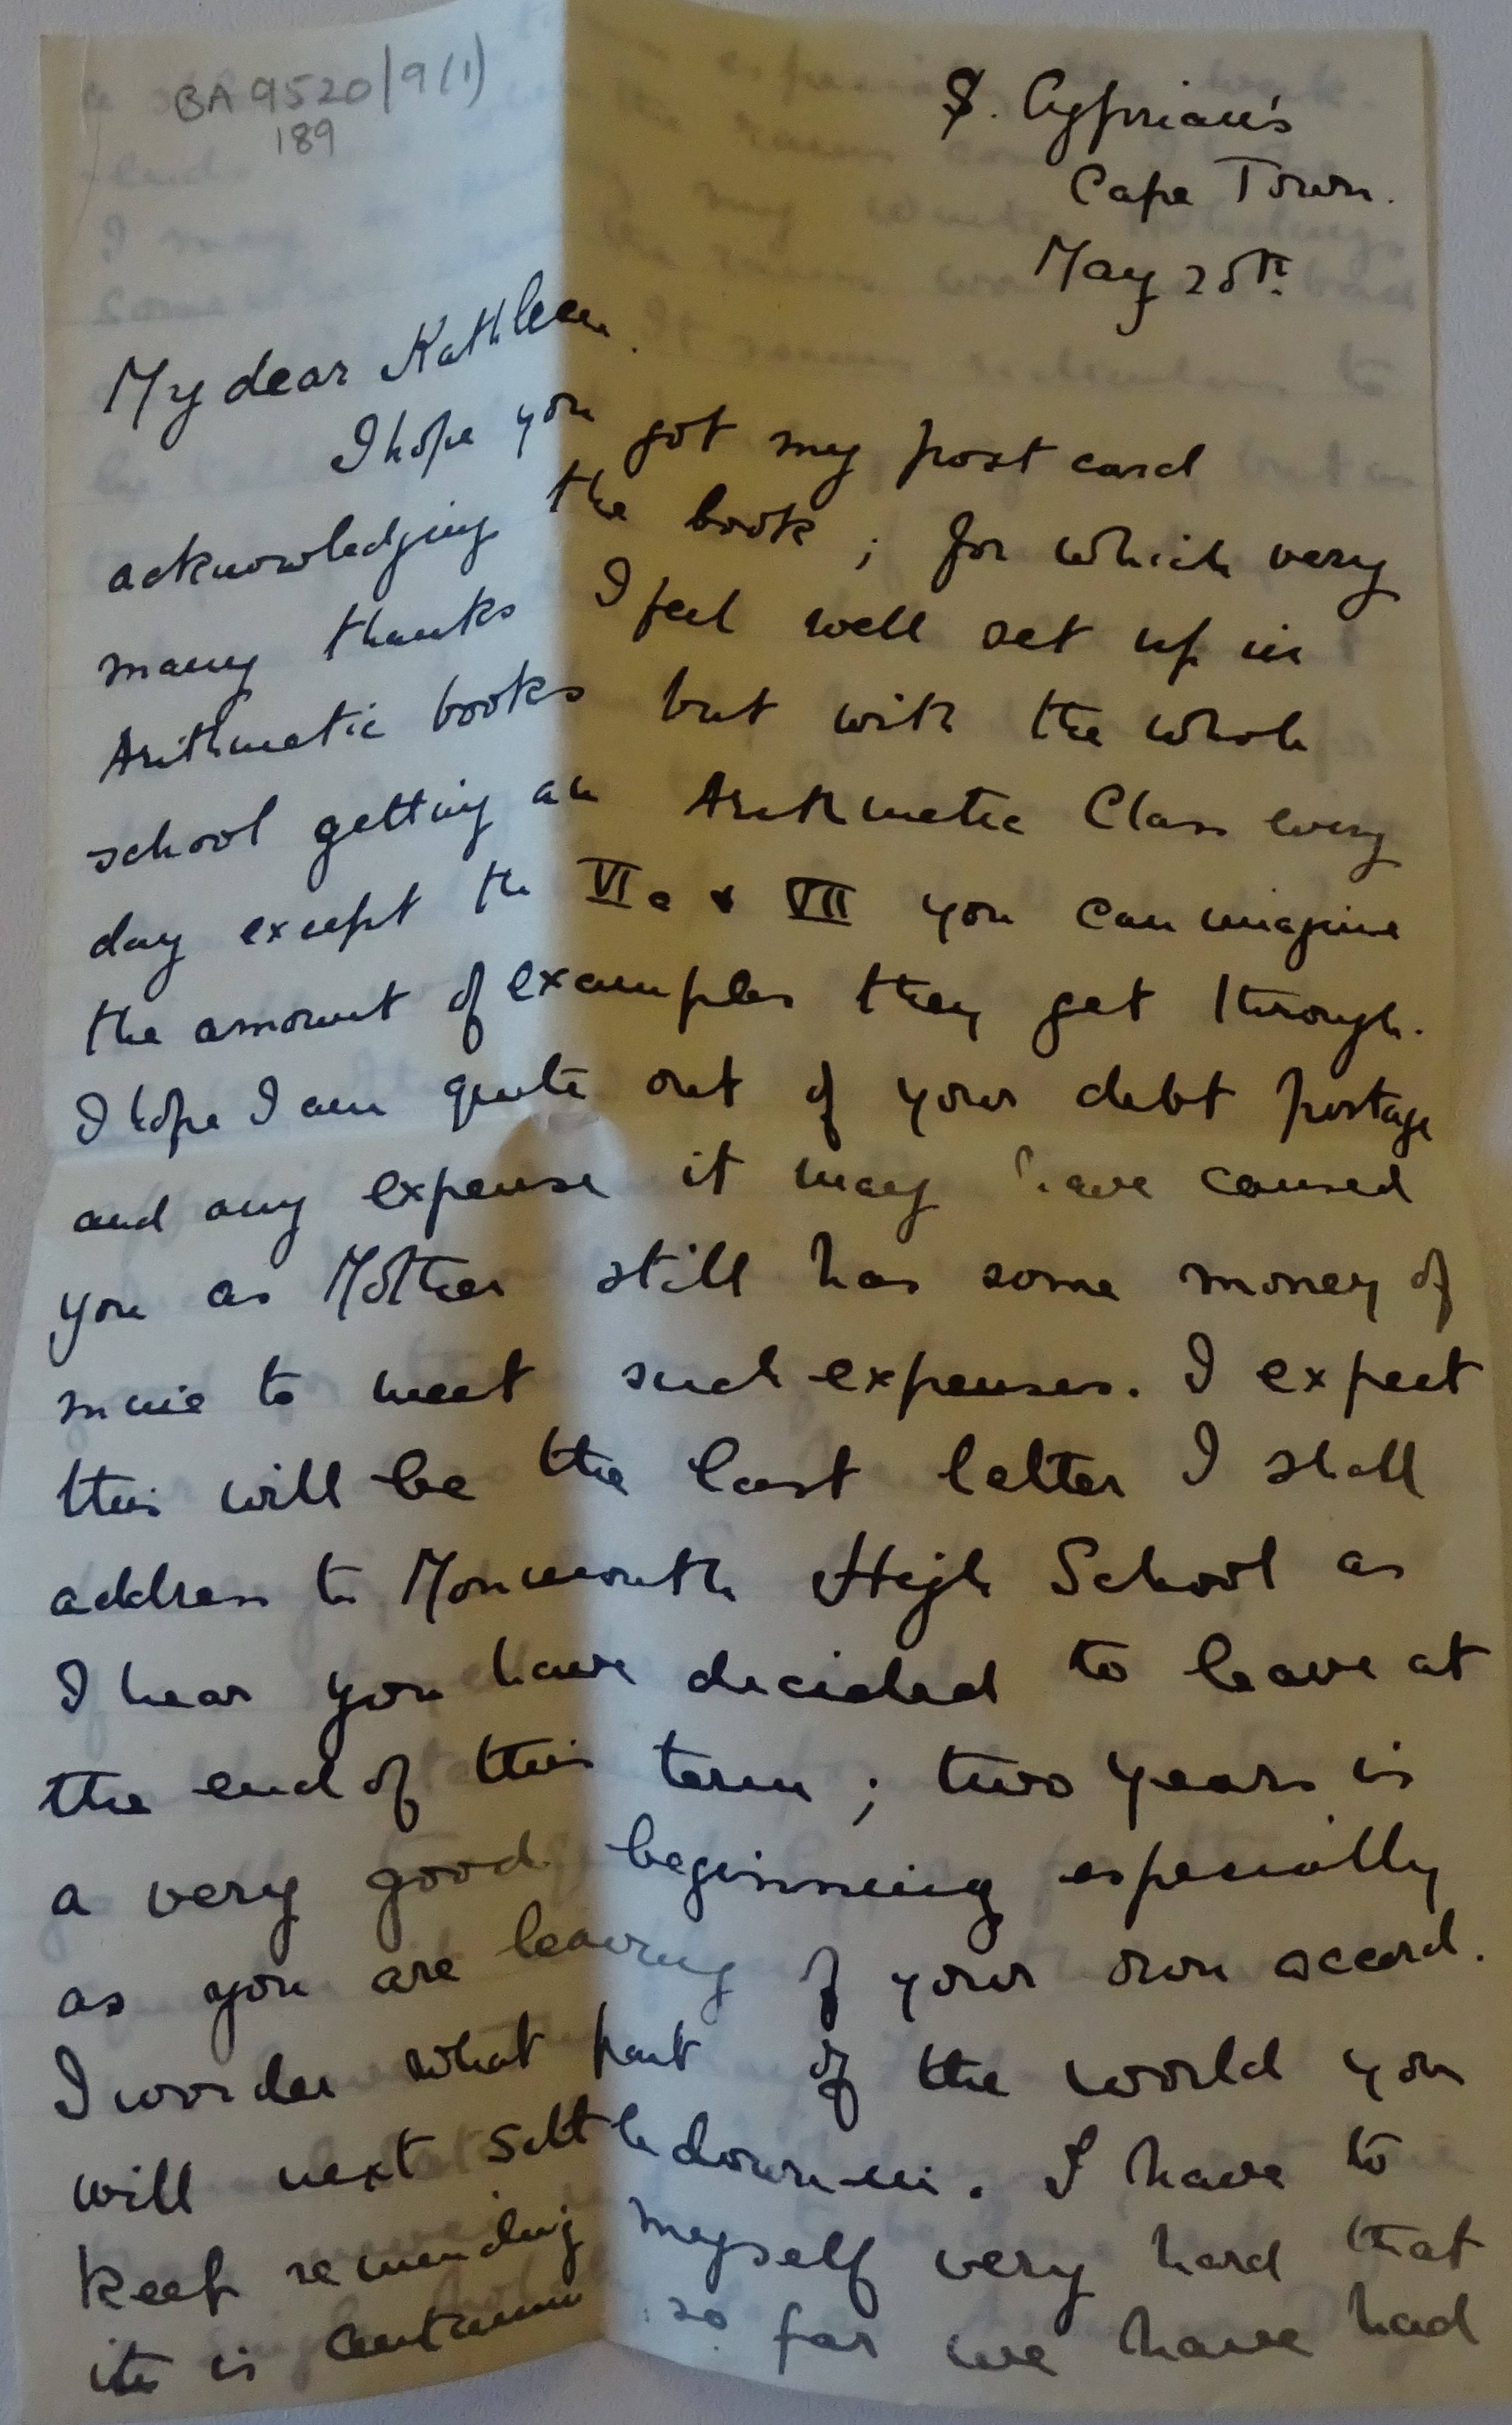 BA 9520/9(1)
189
S. Cyprian's
Cape Town.
May 25th.
My dear Kathleen.
I hope you got my post card
acknowledging the book ; for which very
many thanks I feel well set up in
Arithmetic books but with the whole
school getting an Arithmetic Class every
day except the VI & VII you can imagine
the amount of examples they get through.
I hope I am quite out of your debt postage
and any expense it may have caused
you as Mother still has some money of
mine to meet such expenses. I expect
this will be the last letter I shall
address to Monmouth High School as
I hear you have decided to leave at
the end of this term ; two years is
a very good beginning especially
as you are leaving of your own accord.
I wonder what part of the world you
will next settle down in. I have to
keep reminding myself very hard that
it is autumn so far we have had